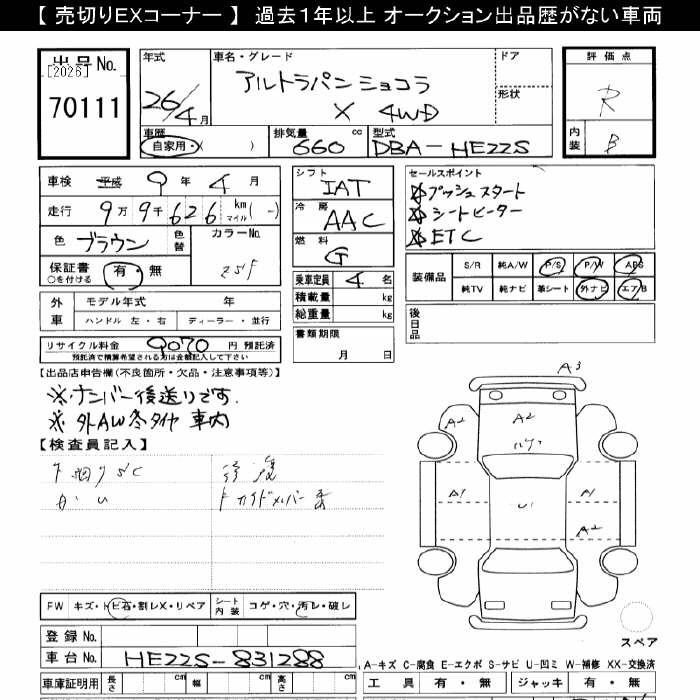 【 売切りEXコーナー 】 過去1年以上 オークション出品歴がない車両
出品No.
[2026]
70111
年式
26/4月
車名・グレード
アルトラパンショコラ
X 4WD
ドア
形状
評価点
R
内装
B
車歴
自家用・( )
排気量
660 cc
型式
DBA-HE22S
車検 平成 9年 4月
走行 9万9千626 km マイル(-)
色 ブラウン
色替
カラーNo.
ZSF
保証書 ○を付ける 有・無
シフト
IAT
冷房
AAC
燃料
G
乗車定員 4名
積載量 kg
総重量 kg
書類期限
月 日
セールスポイント
プッシュスタート
シートヒーター
ETC
装備品
S/R 純A/W P/S P/W ABS
純TV 純ナビ 革シート 外ナビ エアB
後日品
外車
モデル年式 年
ハンドル 左・右 ディーラー・並行
リサイクル料金 9070 円 預託済
預託済で積算希望される方は金額記入して下さい
【出品店申告欄(不良箇所・欠品・注意事項等)】
※ナンバー後送りです.
※ 外AW冬タイヤ 車内
【検査員記入】
下廻りSC
修復
A3
A2
A2
A1
A1
A2
FW キズ・トビ石・割レX・リペア
シート内装 コゲ・穴・汚レ・破レ
登録No.
車台No. HE22S-831288
スペア
A-キズ C-腐食 E-エクボ S-サビ U-凹ミ W-補修 XX-交換済
車庫証明用 長さ cm 幅 cm 高さ cm
工具 有・無 ジャッキ 有・無